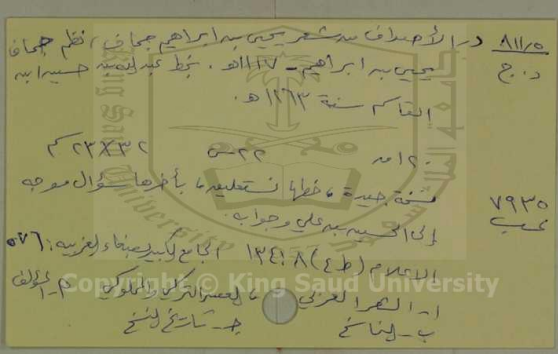 ٨١١٫٥ در الأصداف من شعر يحيى بن ابراهيم جحاف، نظم جحاف
د.ج يحيى بن ابراهيم - ١١١٧هـ. بخط عبدالله بن حسين بن
القاسم سنة ١٢٦٣هـ.
١٢٠ ق ٢٢ س ٣٢×٢٣ سم
٧٩٣٥ نسخة جيدة، خطها نستعليق، بآخرها سؤال موجه
إلى الحسين بن علي وجوابه.
الاعلام (ط٤) ٨: ١٣٤ الجامع الكبير بصنعاء الغربية: ٥٧٦
أ- الشعر العربي، العصر التركي والمملوكي أ- المؤلف
ب- الناسخ ج- تاريخ النسخ
Copyright © King Saud University